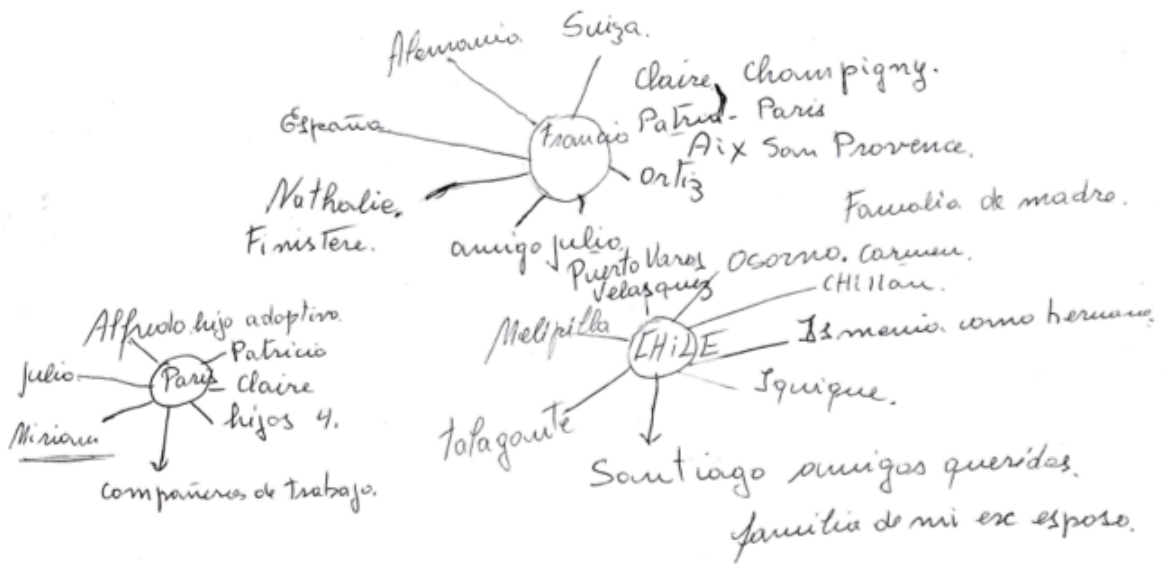 Alemania Suiza.
Claire, Champigny.
España
Francia Patricia - Paris
Aix San Provence.
Ortiz
Nathalie.
Finistere.
amigo julio
Familia de madre.
Puerto Varas
Velasquez
Osorno. Carmen.
CHillan.
Melipilla
CHiLE
Ismenia como hermana.
Iquique.
talagante
Santiago amigos queridos.
familia de mi ex esposo.
Alfredo hijo adoptivo.
Patricio
julio
Paris
Claire
hijos 4.
Miriam
Compañeros de trabajo.